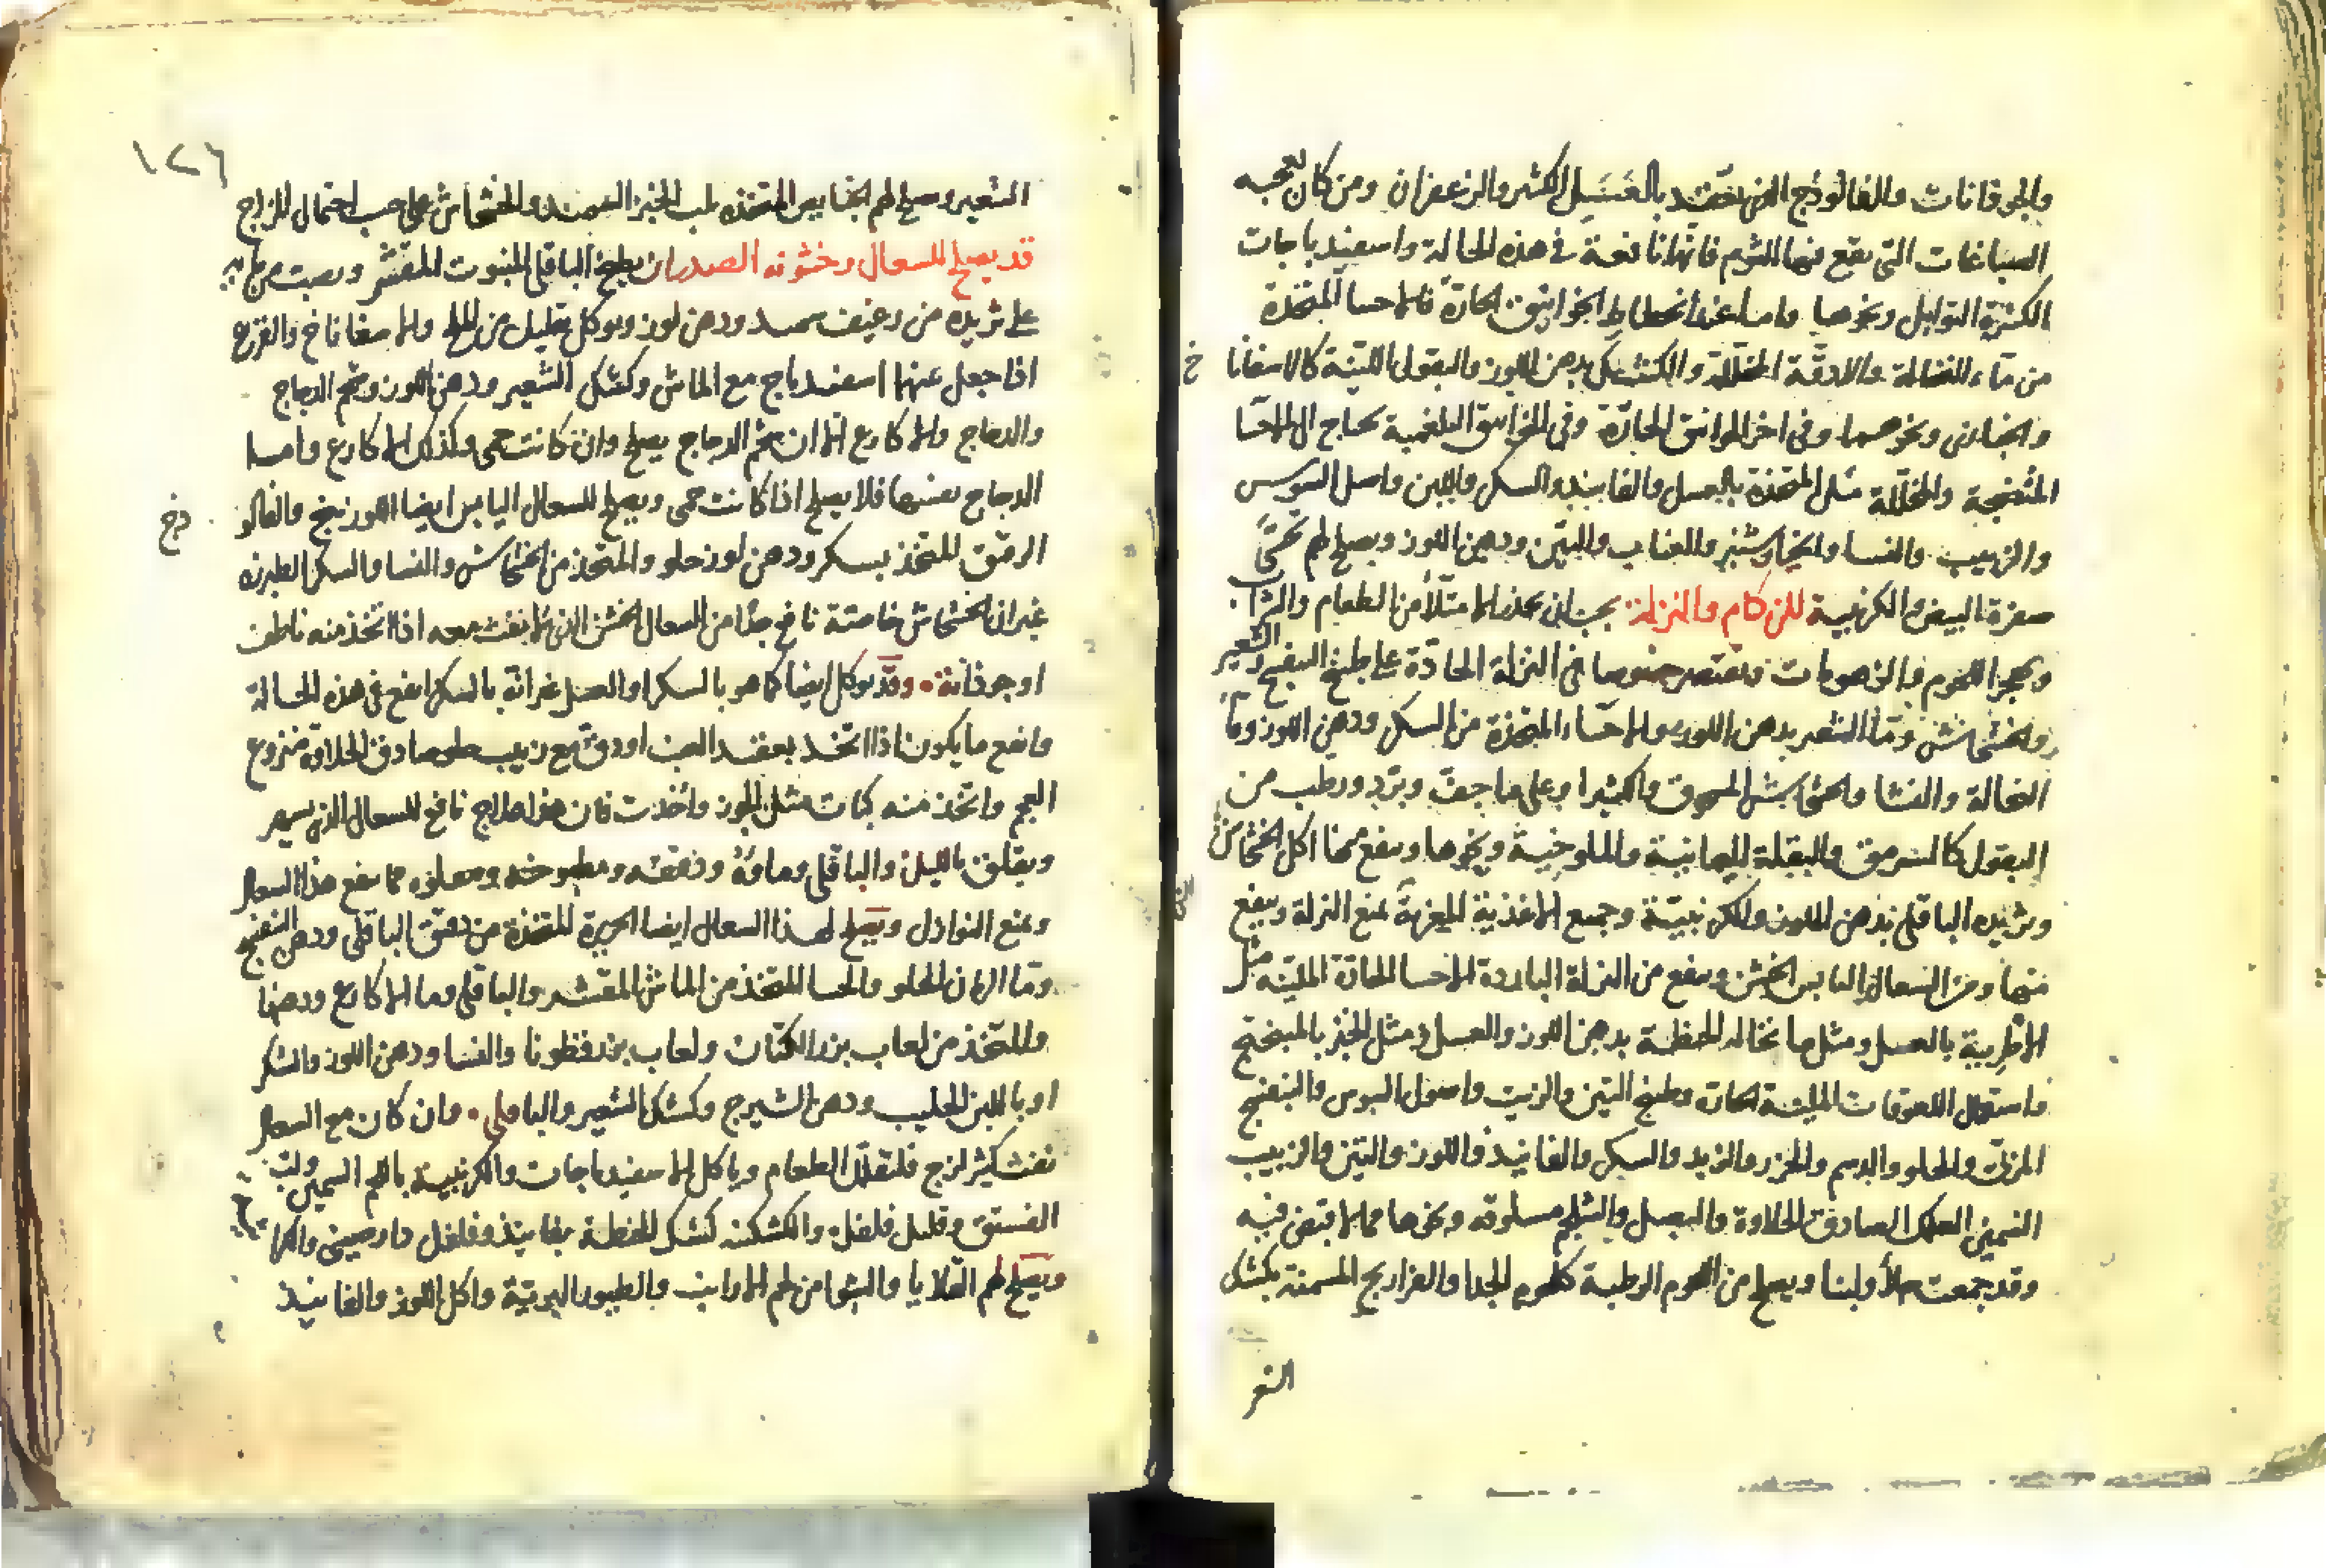 والجوذابات والفالوذج الذي يتخذ بالعسل الكثير والزعفران ومن كان يعجبه
الصباغات التي يقع فيها الثوم فانها نافعة في هذه الحالة واسفيذباجات
الكثيرة التوابل ونحوها واما عند انحطاط الخوانيق الحارة فالاحسا المتخذة
من ماء النخالة والادقة المحللة والكشك بدهن اللوز والبقول اللينة كالاسفانا
خ
والخبازى ونحوهما وفي اخر الخوانيق الحارة وفي الخوانيق البلغمية يحتاج الى الاحسا
المنضجة والمحللة مثل المتخذة بالعسل والفانيذ والسكر واللبن واصل السوس
والزبيب والنسا والخيارشنبر والعناب والتين ودهن اللوز ويصلح لهم
صفرة البيض والكرنبية للزكام والنزلة يجب ان يحذر الامتلأ من الطعام والشراب
ويهجر اللحوم والزهومات ويقتصر خصوصا في النزلة الحادة على طبيخ البنفسج والشعير
والخشخاش وماء الشعير بدهن اللوز والاحساء المتخذة من السكر ودهن اللوز وماء
النخالة والنشا والخشخاش المسحوق والكثيرا وعلى ما جفف وبرد ورطب من
البقول كالسرمق والبقلة اليمانية والملوخية ونحوها وينفع منها اكل الخشخاش
وثريده الباقلى بدهن اللوز والكرنبية وجميع الاغذية المغرية تمنع النزلة وينفع
منها ومن السعال اليابس الخشن وينفع من النزلة الباردة الاحسا الحارة الملينه مثل
الاطرية بالعسل ومثل ما نخاله الحنطة بدهن اللوز والعسل ومثل الخبز بالميبختج
واستعمال اللعوقات الملينة الحارة وطبيخ التين والزبيب واصول السوس والبنفسج
المزلق والحلو والدسم والجزر والزبد والسكر والفانيذ واللوز والتين والزبيب
السمين العلك الصادق الحلاوة والبصل والشلجم مسلوقه ونحوها مما لا قبض فيه
وقد جمعت ويصلح من اللحوم الرطبة كلحوم الجدا والفراريج المسمنة بكشك
الشعر
١٢٦
الشعير ويصلح لهم الخبايص المتخذه بلب الخبز السميذ والخشخاش على حسب احتمال المزاج
قد يصلح للسعال وخشونه الصدر ان يطبخ الباقلى المنبوت المقشر ويصب
على ثريده من رغيف سميد ودهن لوز ويوكل بقليل من الملح والاسفاناخ والقرع
اذا جعل عنها اسفيدباج مع الماش وكشك الشعير ودهن اللوز وشحم الدجاج
والدجاج والاكارع الا ان شحم الدجاج يصلح وان كانت حمى وكذلك الاكارع واما
الدجاج بعينها فلا يصلح اذا كانت حمى ويصلح للسعال اليابس ايضا اللوزينج والفالو
دخ
الرقق المتخذ بسكر ودهن لوز حلو والمتخذ من الخشخاش والنسا والسكر الطبرزد
غير ان الخشخاش خاصته نافع جدا من السعال الخشن الذي لا نفث معه اذا اتخذ منه ناطف
او جوذابة وقد يوكل ايضا كما هو بالسكر او العسل غير انه بالسكر انفع في هذه الحالة
وانفع ما يكون اذا اتخذ بعقيد العنب او دق مع زبيب حلو صادق الحلاوة منزوع
العجم واتخذ منه كبات مثل الجوز وأخذت فان هذا علاج نافع للسعال الذي يسهر
ويقلق بالليل والباقلى وماؤه ودقيقه ومطبوخه ومقلوه مما ينفع هذا السعال
ويمنع النوازل ويصلح لهذا السعال ايضا الحريرة المتخذة من دقيق الباقلى ودهن البنفسج
وماء الرمان الحلو والحسا المتخذ من الماش المقشر والباقلى وما الاكارع ودهنها
والمتخذ من لعاب بزر الكتان ولعاب بزر قطونا والنسا ودهن اللوز والسكر
او باللبن الحليب ودهن الشيرج وكشك الشعير والباقلى وان كان مع السعال
نفث كثير لزج فليقلل الطعام وياكل الاسفيذباجات والكرنبية باللحم السمين ولب
الفستق وقليل فلفل والكشكية كشك الحنطة بفانيذ وفلفل دارصيني
ويصلح لهم القلايا والشوا من لحم الارانب والطيور البرية واكل اللوز والفانيذ